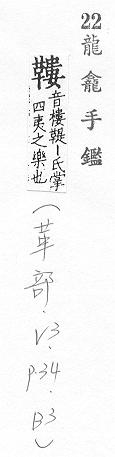 22龍龕手鑑
鞻
音樓鞮ー氏掌
四夷之樂也
(革部.V3.P.34.B3)